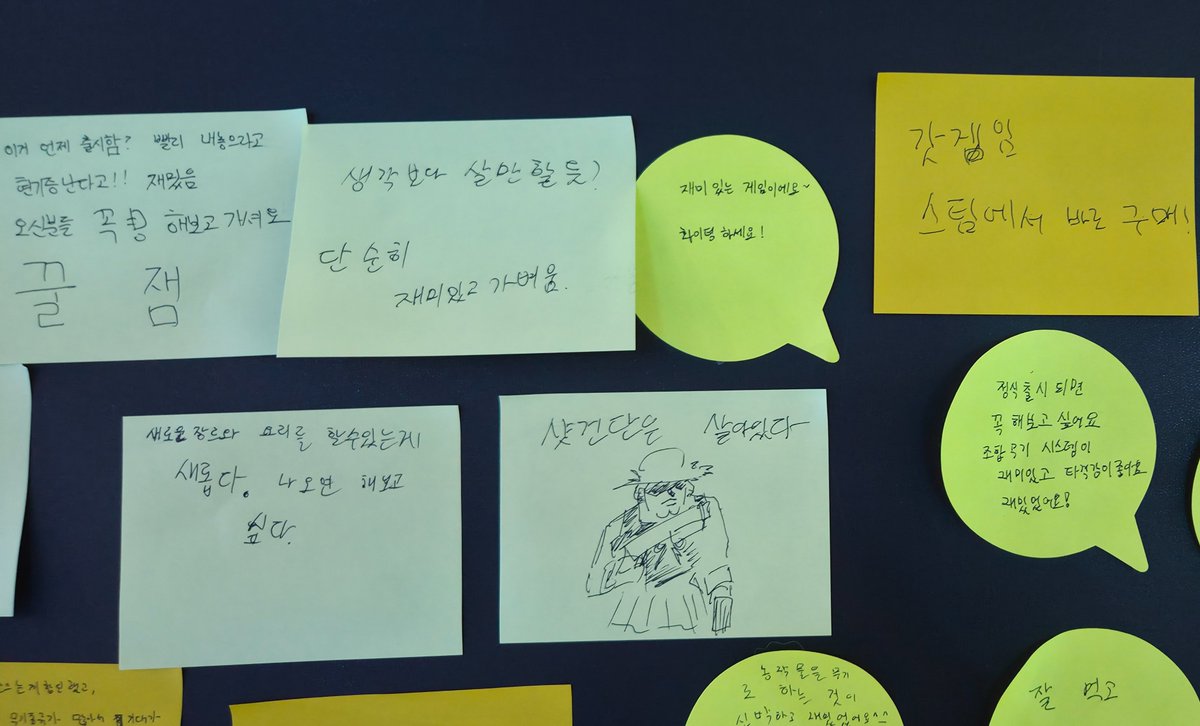 이거 언제 출시함? 빨리 내놓으라고
현기증난다고!! 재밌음
오신분들 꼭 해보고 가셔요
꿀 잼
생각보다 살만할듯?
단순히
재미있고 가벼움.
재미있는 게임이에요~
화이팅 하세요!
갓겜임
스팀에서 바로 구매!
새로운 장르와 요리를 할수있는게
새롭다. 나오면 해보고
싶다.
샷건단은 살아있다
정식출시 되면
꼭 해보고 싶어요
조합무기 시스템이
재미있고 타격감이 좋아요
재밌었어요!
농작물을 무기
로 하는 것이
신박하고 재밌었어요^^
잘 먹고